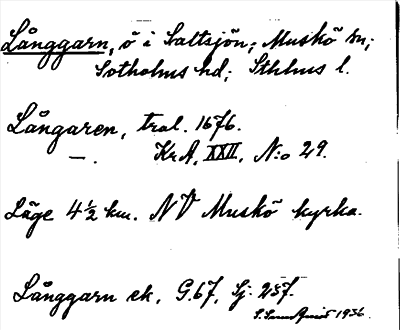 Långgarn, ö i Saltsjön; Muskö sn;
Sotholms hd; Sthlms l.
Långaren, tral. 1676.
—. KrA, XXII, N:o 29.
Läge 4 ½ km. NV Muskö kyrka.
Långgarn ek. G.67, Sj. 257.
1936.